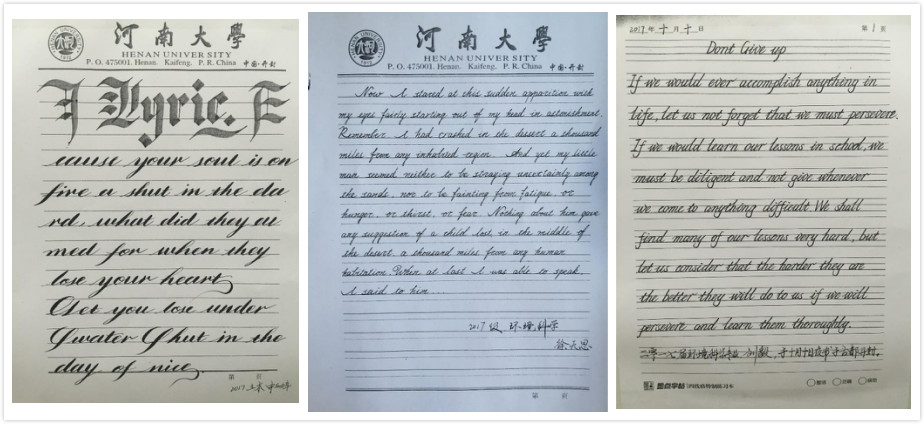 河南大學
HENAN UNIVERSITY
P. O. 475001. Henan. Kaifeng. P. R. China 中國·开封
Lyric.
cause your soul is on
fire a shut in the da
rd, what did they ai
med for when they
lose your heart
let you lose under
water shut in the
day of nice.
第 页
2017
河南大學
HENAN UNIVERSITY
P. O. 475001. Henan. Kaifeng. P. R. China 中國·开封
Now I stared at this sudden apparition with
my eyes fairly starting out of my head in astonishment.
Remember. I had crashed in the desert a thousand
miles from any inhabited region. And yet my little
man seemed neither to be straying uncertainly among
the sands, nor to be fainting from fatigue or
hunger or thirst, or fear. Nothing about him gave
any suggestion of a child lost in the middle of
the desert a thousand miles from any human
habitation. When at last I was able to speak,
I said to him
2017级 环境科学
徐天恩
第 页
2017年十月十日 第1页
Dont Give up
If we would ever accomplish anything in
life, let us not forget that we must persevere.
If we would learn our lessons in school, we
must be diligent and not give whenever
we come to anything difficult. We shall
find many of our lessons very hard, but
let us consider that the harder they are
the better they will do to us if we will
persevere and learn them thoroughly.
二零一七 十月十日 开封.